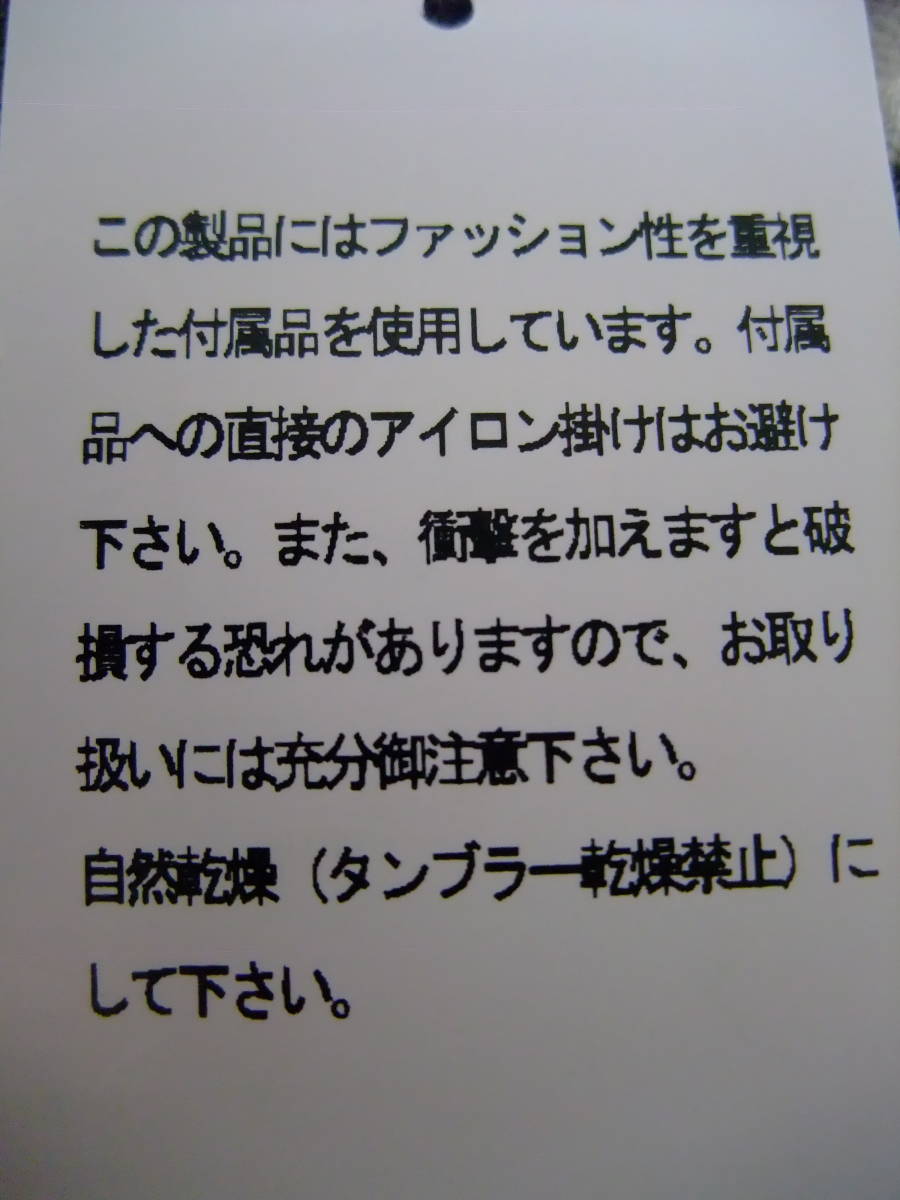 この製品にはファッション性を重視
した付属品を使用しています。付属
品への直接のアイロン掛けはお避け
下さい。また、衝撃を加えますと破
損する恐れがありますので、お取り
扱いには充分御注意下さい。
自然乾燥（タンブラー乾燥禁止）に
して下さい。